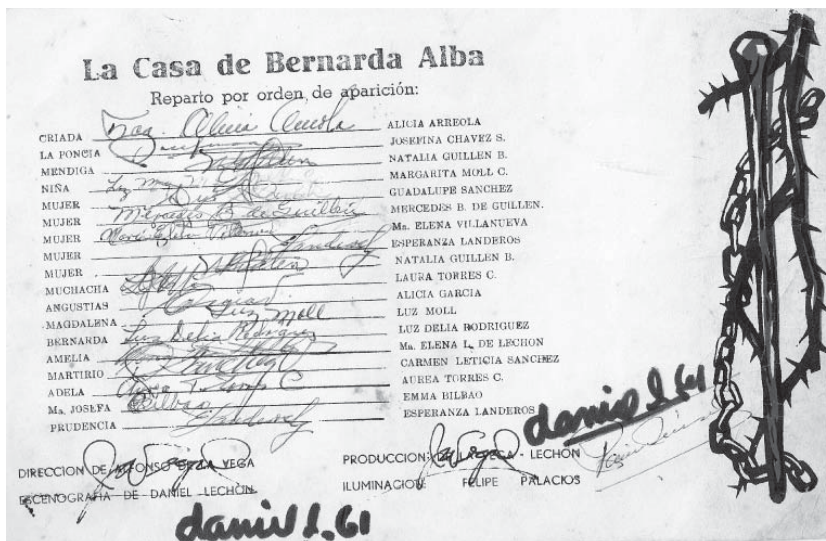 La Casa de Bernarda Alba
Reparto por orden de aparición:
CRIADA Alicia ALICIA ARREOLA
LA PONCIA JOSEFINA CHAVEZ S.
MENDIGA NATALIA GUILLEN B.
NIÑA MARGARITA MOLL C.
MUJER GUADALUPE SANCHEZ
MUJER Mercedes B de Guillén MERCEDES B. DE GUILLEN.
MUJER Ma. ELENA VILLANUEVA
MUJER ESPERANZA LANDEROS
MUJER NATALIA GUILLEN B.
MUCHACHA LAURA TORRES C.
ANGUSTIAS ALICIA GARCIA
MAGDALENA Luz Moll LUZ MOLL
BERNARDA Luz Delia Rodriguez LUZ DELIA RODRIGUEZ
AMELIA Ma. ELENA L. DE LECHON
MARTIRIO CARMEN LETICIA SANCHEZ
ADELA AUREA TORRES C.
Ma. JOSEFA Bilbao EMMA BILBAO
PRUDENCIA ESPERANZA LANDEROS
daniel l. 61
DIRECCION DE ALFONSO DE LA VEGA
PRODUCCION: DE LA VEGA - LECHON
ESCENOGRAFIA DE DANIEL LECHON.
ILUMINACION: FELIPE PALACIOS
daniel l. 61